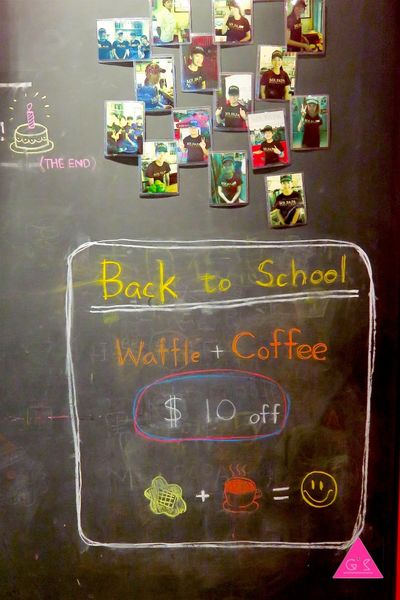 (THE END)
Back to School
Waffle + Coffee
$ 10 off
+ =
G'S